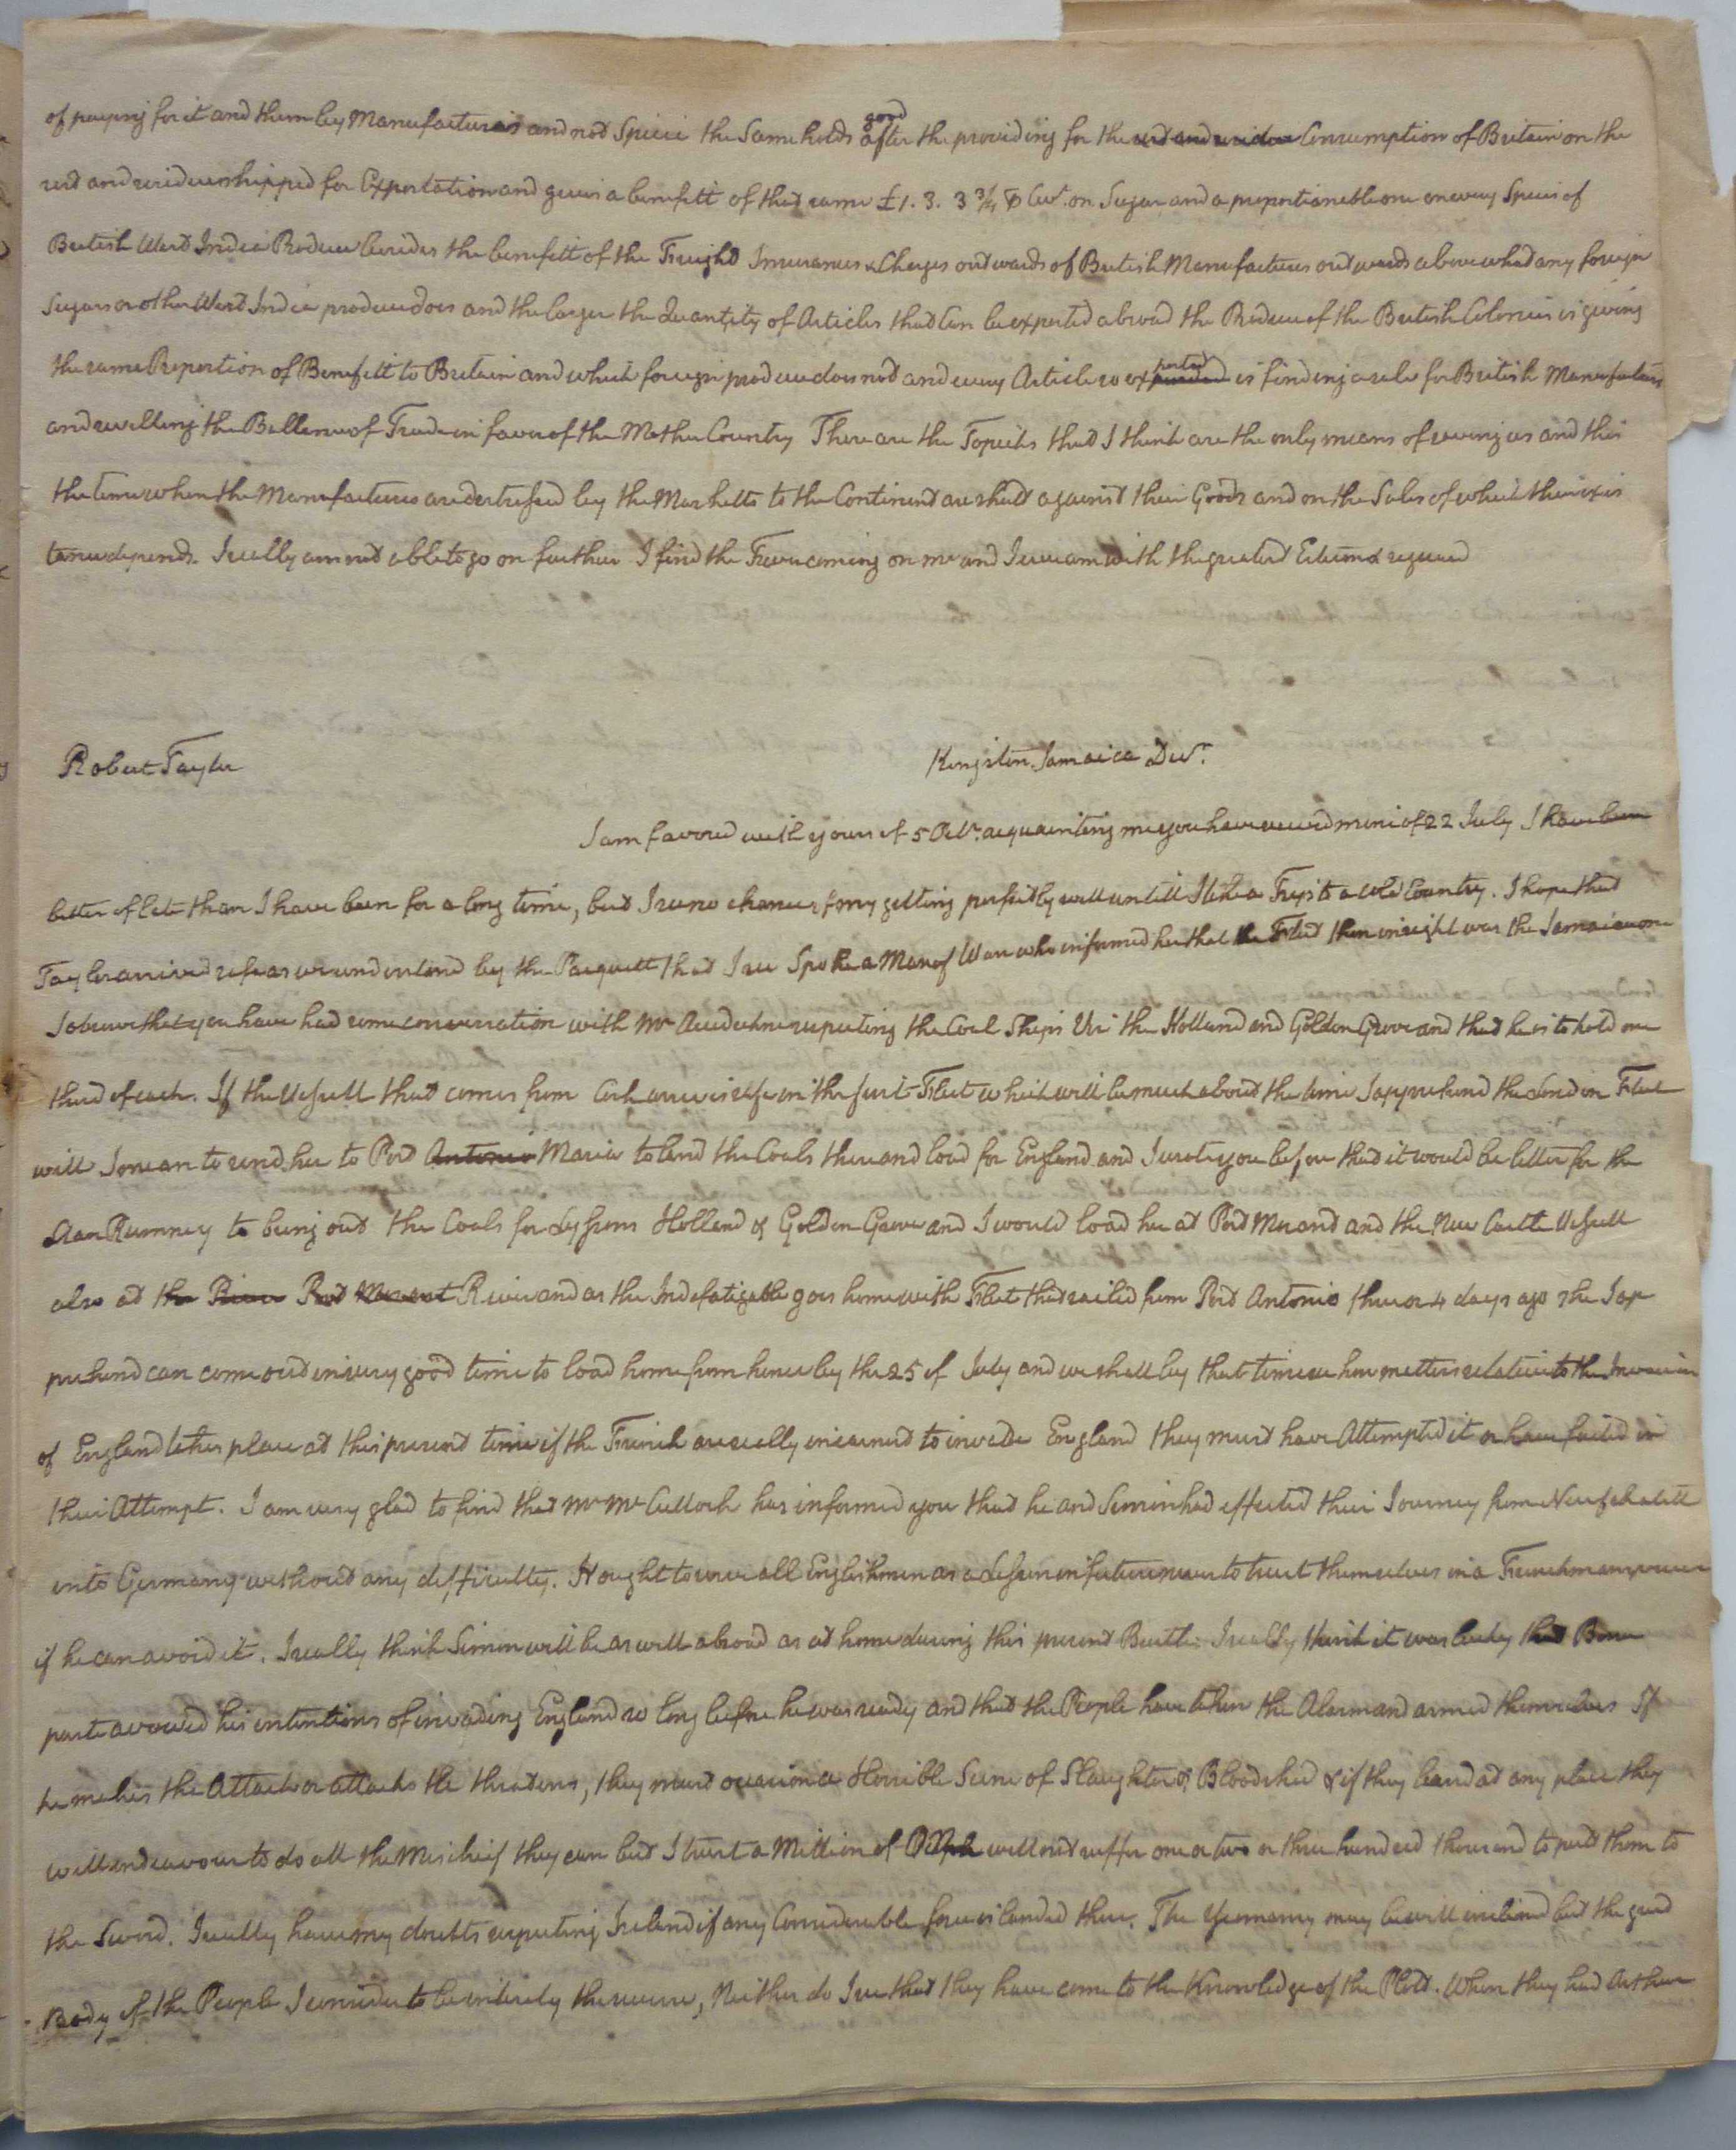 of paying for it and them by Manufactures and not Specie the Same holds good after the providing for the rest and residue Consumption of Britain on the
rest and residue shipped for Exportation and gives a benefitt of that same £1. 3. 3 3/4 ⅌ Cwt. on Sugar and a proportionable one on every Species of
British West India Produce besides the benefitt of the Freight Insurances & Charges outwards of British Manufactures outwards above what any foreign
Sugars or other West India produce does and the larger the Quantity of Articles that Can be exported abroad the Produce of the British Colonies is giving
the same Proportion of Benefitt to Britain and which foreign produce does not and every Article so exported is finding a sale for British Manufactures
and swelling the Ballance of Trade in favor of the Mother Country These are the Topicks that I think are the only means of saving us and this
the time when the Manufactures are distressed by the Marketts to the Continent are shutt against their Goods and on the Sales of which their exis
tance depends. I really am not able to go on further I find the Fever coming on me and I remain with the greatest Esteem & regard
Robert Taylor Kingston Jamaica Decr.
I am favored with yours of 5 Octr. acquainting me you have received mine of 22 July I have been
better of late than I have been for a long time, but I see no chance of my getting perfectly well untill I take a Trip to a cold Country. I hope that
Taylor arrived safe as we understand by the Pacquett that I see Spoke a Man of War who informed her that the Fleet then in sight was the Jamaica one
I observe that you have had some conversation with Mr Arcedekne respecting the Coal Ships Viz the Holland and Golden Grove and that he is to hold one
third of each. If the Vessell that comes from Cork arrives safe in the first Fleet which will be much about the time I apprehend the London Fleet
will I mean to send her to Port Antonio Maria to land the Coals there and load for England and I wrote you before that it would be better for the
Aan Rumney to bring out the Coals for Lyssons Holland & Golden Grove and I would load her at Port Morant and the New Castle Vessell
also at the River Port Morant River and as the Indefatigable goes home with Fleet that sailed from Port Antonio three or 4 days ago She I ap
prehend can come out in very good time to load home from hence by the 25 of July and we shall by that time see how matters relative to the Invasion
of England takes place at this present time if the French are really in earnest to invade England they must have Attempted it or have failed in
their Attempt. I am very glad to find that Mr McCulloch has informed you that he and Simon had effected their Journey from Neufchatell
into Germany without any difficulty. It ought to serve all Englishmen as a Lesson in future never to trust themselves in a Frenchmans power
if he can avoid it. I really think Simon will be as well abroad as at home during this present Bustle. I really think it was lucky that Bona
parte avowed his intentions of invading England so long before he was ready and that the People have taken the Alarm and armed themselves If
he makes the Attack or attacks he threatens, they must occasion a Horrible Scene of Slaughter & Bloodshed & if they land at any place they
will endeavour to do all the Mischief they can but I trust a Million of People will not suffer one or two or three hundred thousand to putt them to
the Sword. I really have my doubts respecting Ireland if any Considerable force is landed there. The Yeomanry may be well inclined but the great
Body of the People I consider to be intirely the reverse, Neither do I see that they have come to the Knowledge of the Plott. When they had Arthur